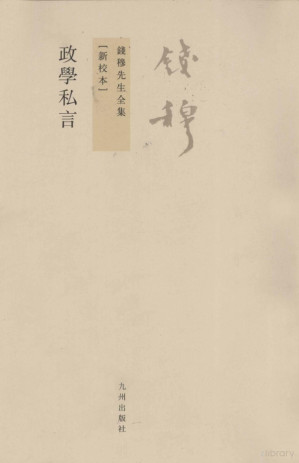 錢穆
錢穆先生全集
[新校本]
政學私言
九州出版社
library